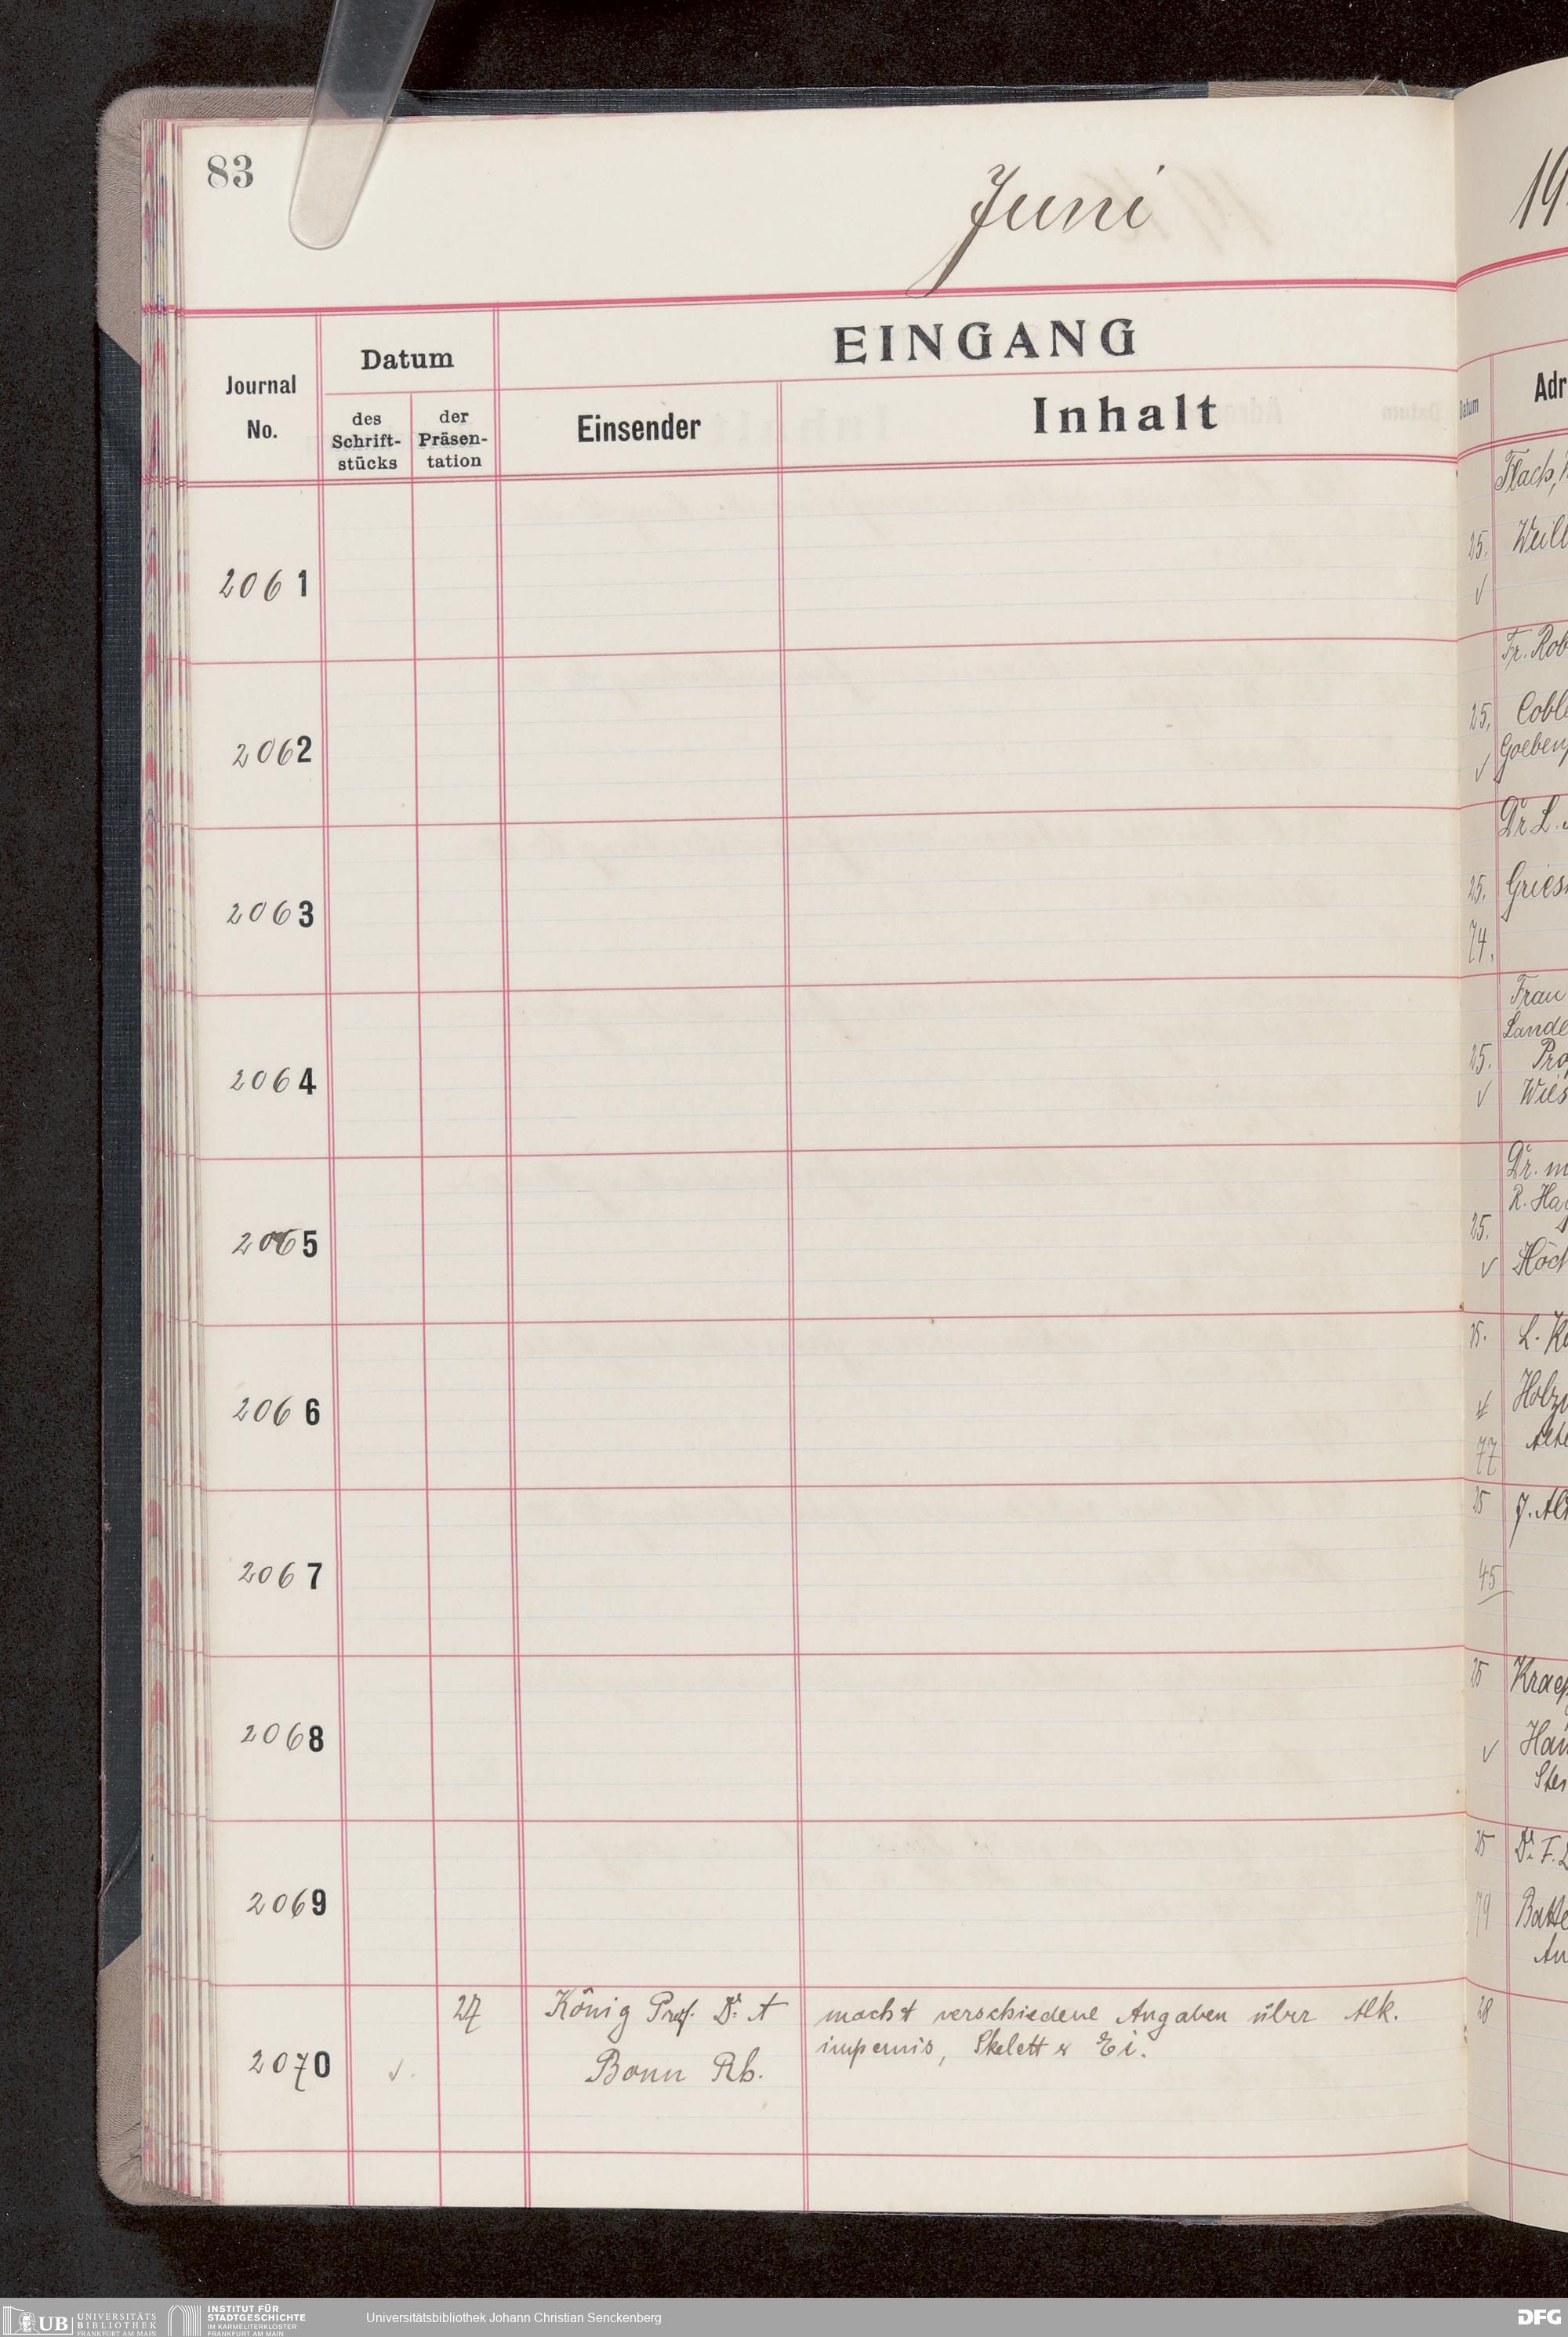 83
Juni
EINGANG
Journal No.
Datum
des Schrift-stücks
der Präsen-tation
Einsender
Inhalt
2061
2062
2063
2064
2065
2066
2067
2068
2069
2070
✓.
27
König Prof. Dr. A
Bonn Rh.
macht verschiedene Angaben über Alk.
impennis, Skelett & Ei.
19
Datum
Adr
25. Weil
✓
Fr. Rob
25. Cobl
✓ Goeben
Dr L.
25. Gries
74.
Frau
Lande
25. Pro
✓ Wies
Dr. m
R. Ha
25.
✓ Höch
25. L. K
Holz
77
25 J. Al
45
25 Kraep
✓ Ha
25 Dr. F.
79 Batte
An
28
UB UNIVERSITÄTS BIBLIOTHEK FRANKFURT AM MAIN
INSTITUT FÜR STADTGESCHICHTE IM KARMELITERKLOSTER FRANKFURT AM MAIN
Universitätsbibliothek Johann Christian Senckenberg
DFG